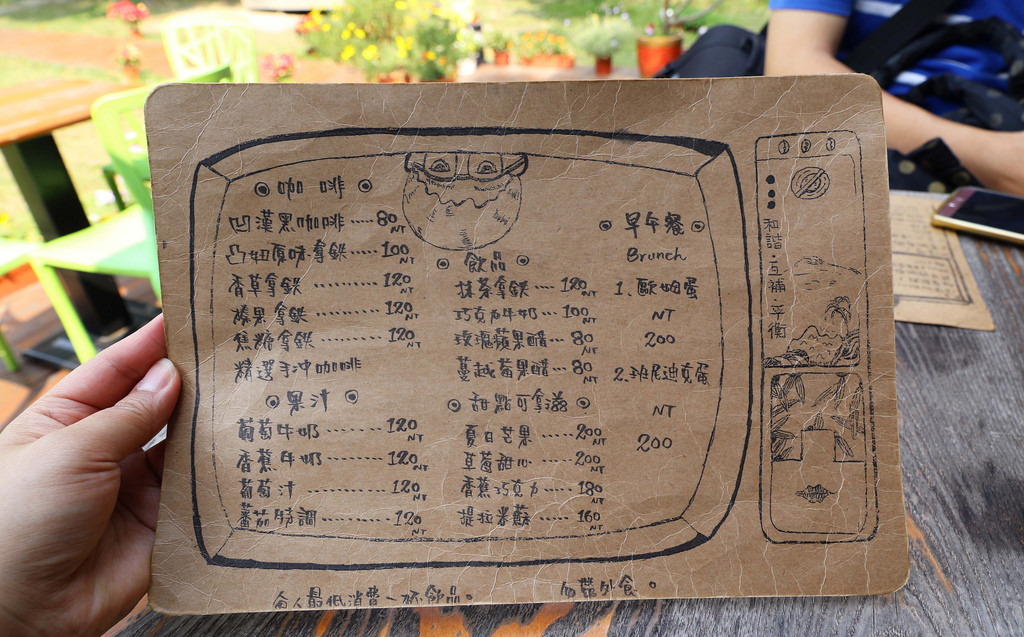 咖 啡
凹漢黑咖啡 ····· 80 NT
凸妞原味拿鉄 ···· 100 NT
香草拿鉄 ·········· 120 NT
榛果拿鉄 ·········· 120 NT
焦糖拿鉄 ········ 120 NT
精選手冲咖啡
果汁
葡萄牛奶 ········ 120 NT
香蕉牛奶 ········ 120 NT
葡萄汁 ············ 120 NT
蕃茄特調 ·········· 120 NT
飲品
抹茶拿鉄 ···· 120 NT
巧克力牛奶 ···· 100 NT
玫瑰蘋果醋 ··· 80 NT
蔓越莓果醋 ··· 80 NT
甜點可拿滋
夏日芒果 ······ 200 NT
草莓甜心 ······ 200 NT
香蕉巧克力 ···· 180 NT
提拉米蘇 ····· 160 NT
早午餐
Brunch
1. 歐姆蛋
NT
200
2. 班尼迪克蛋
NT
200
和諧·互補·平衡
每人最低消費一杯飲品。
勿帶外食。